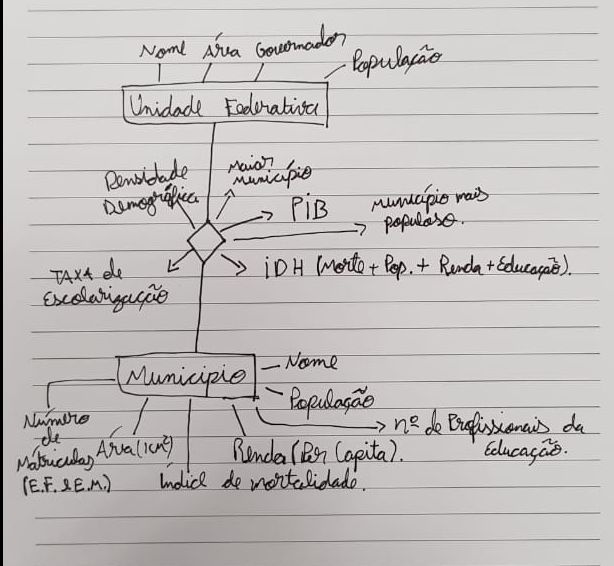 Nome Área Governador
População
Unidade Federativa
Densidade
Demográfica
Maior
Município
PIB
Município mais
populoso.
TAXA de
Escolarização
iDH (Morte + Pop. + Renda + Educação).
Município
Nome
População
nº de Profissionais da
Educação.
Número
de
Mátriculas
(E.F. & E.M.)
Área (Km²)
Renda (Per Capita).
Índice de mortalidade.